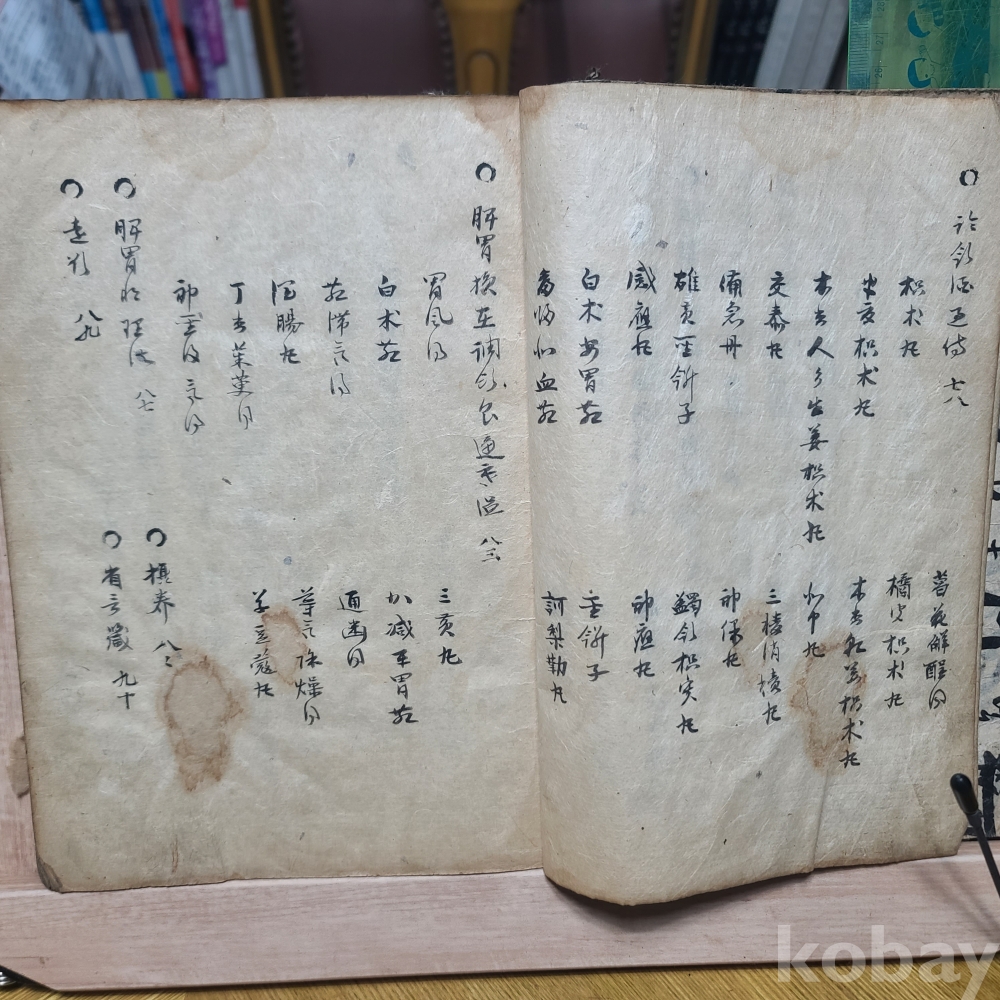 論飮酒過傷 七八
葛花解酲湯
枳朮丸
橘皮枳朮丸
半夏枳朮丸
木香乾姜枳朮丸
木香人參生姜枳朮丸
和中丸
交泰丸
三棱消積丸
備急丹
神保丸
雄黃聖餠子
蠲飮枳實丸
感應丸
神應丸
白朮安胃散
聖餠子
當歸和血散
訶梨勒丸
脾胃損在調飮食適寒溫 八三
三黃丸
胃風湯
加減平胃散
白朮散
通幽湯
散滯氣湯
導氣除燥湯
潤腸丸
草豆蔻丸
丁香茱萸湯
神聖復氣湯
攝養
脾胃將理法 八七
省言箴 九十
遠欲 八九